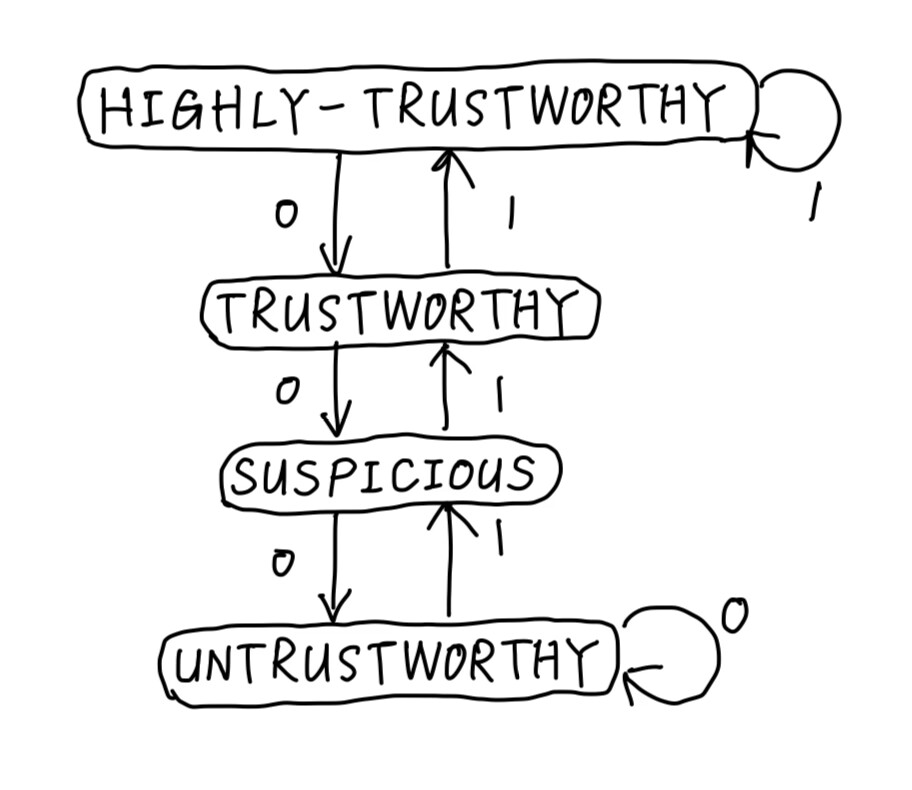 HIGHLY-TRUSTWORTHY
1
0 1
TRUSTWORTHY
0 1
SUSPICIOUS
0 1
UNTRUSTWORTHY
0